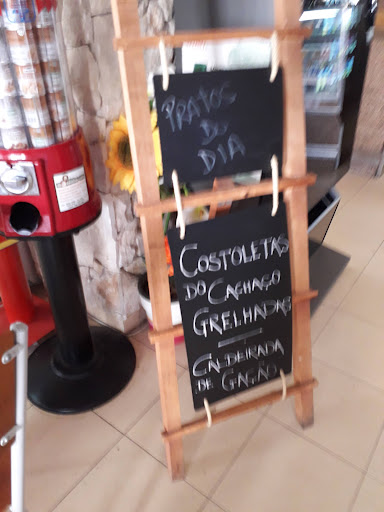 PRATOS
DO
DIA
COSTOLETAS
DO CACHAÇO
GRELHADAS
CALDEIRADA
DE CAÇÃO